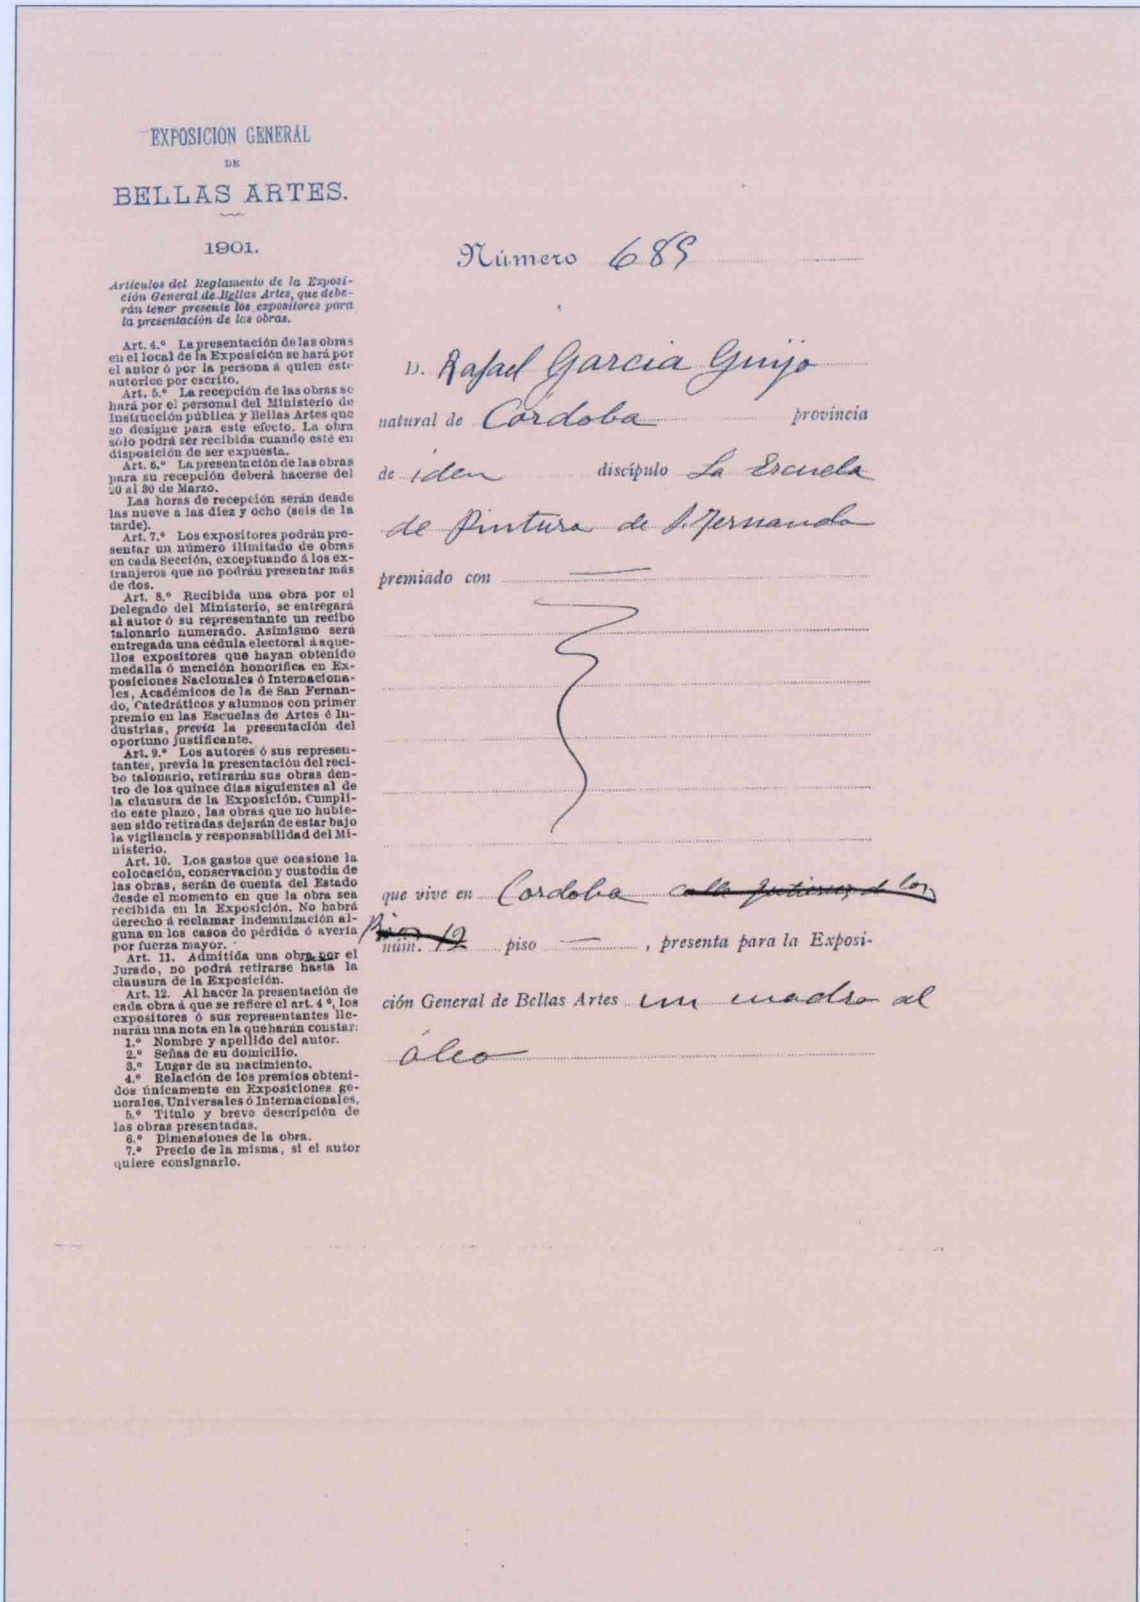 EXPOSICIÓN GENERAL
DE
BELLAS ARTES.
1901.
Artículos del Reglamento de la Exposi-
ción General de Bellas Artes, que debe-
rán tener presente los expositores para
la presentación de las obras.
Art. 4.º La presentación de las obras
en el local de la Exposición se hará por
el autor ó por la persona á quien éste
autorice por escrito.
Art. 5.º La recepción de las obras se
hará por el personal del Ministerio de
Instrucción pública y Bellas Artes que
se designe para este efecto. La obra
sólo podrá ser recibida cuando esté en
disposición de ser expuesta.
Art. 6.º La presentación de las obras
para su recepción deberá hacerse del
20 al 30 de Marzo.
Las horas de recepción serán desde
las nueve a las diez y ocho (seis de la
tarde).
Art. 7.º Los expositores podrán pre-
sentar un número ilimitado de obras
en cada Sección, exceptuando á los ex-
tranjeros que no podrán presentar más
de dos.
Art. 8.º Recibida una obra por el
Delegado del Ministerio, se entregará
al autor ó su representante un recibo
talonario numerado. Asimismo será
entregada una cédula electoral á aque-
llos expositores que hayan obtenido
medalla ó mención honorifica en Ex-
posiciones Nacionales ó Internaciona-
les, Académicos de la de San Fernan-
do, Catedráticos y alumnos con primer
premio en las Escuelas de Artes é In-
dustrias, previa la presentación del
oportuno justificante.
Art. 9.º Los autores ó sus represen-
tantes, previa la presentación del reci-
bo talonario, retirarán sus obras den-
tro de los quince días siguientes al de
la clausura de la Exposición. Cumpli-
do este plazo, las obras que no hubie-
sen sido retiradas dejarán de estar bajo
la vigilancia y responsabilidad del Mi-
nisterio.
Art. 10. Los gastos que ocasione la
colocación, conservación y custodia de
las obras, serán de cuenta del Estado
desde el momento en que la obra sea
recibida en la Exposición. No habrá
derecho á reclamar indemnización al-
guna en los casos de pérdida ó avería
por fuerza mayor.
Art. 11. Admitida una obra por el
Jurado, no podrá retirarse hasta la
clausura de la Exposición.
Art. 12. Al hacer la presentación de
cada obra á que se refiere el art. 4º, los
expositores ó sus representantes lle-
narán una nota en la que harán constar:
1.º Nombre y apellido del autor.
2.º Señas de su domicilio.
3.º Lugar de su nacimiento.
4.º Relación de los premios obteni-
dos únicamente en Exposiciones ge-
nerales, Universales ó Internacionales.
5.º Título y breve descripción de
las obras presentadas.
6.º Dimensiones de la obra.
7.º Precio de la misma, si el autor
quiere consignarlo.
Número 689
D. Rafael Garcia Guijo
natural de Córdoba provincia
de iden discípulo La Escuela
de Pintura de S. Fernando
premiado con —
que vive en Cordoba calle Gutierrez de los
núm. 12 piso — , presenta para la Exposi-
ción General de Bellas Artes un cuadro al
óleo